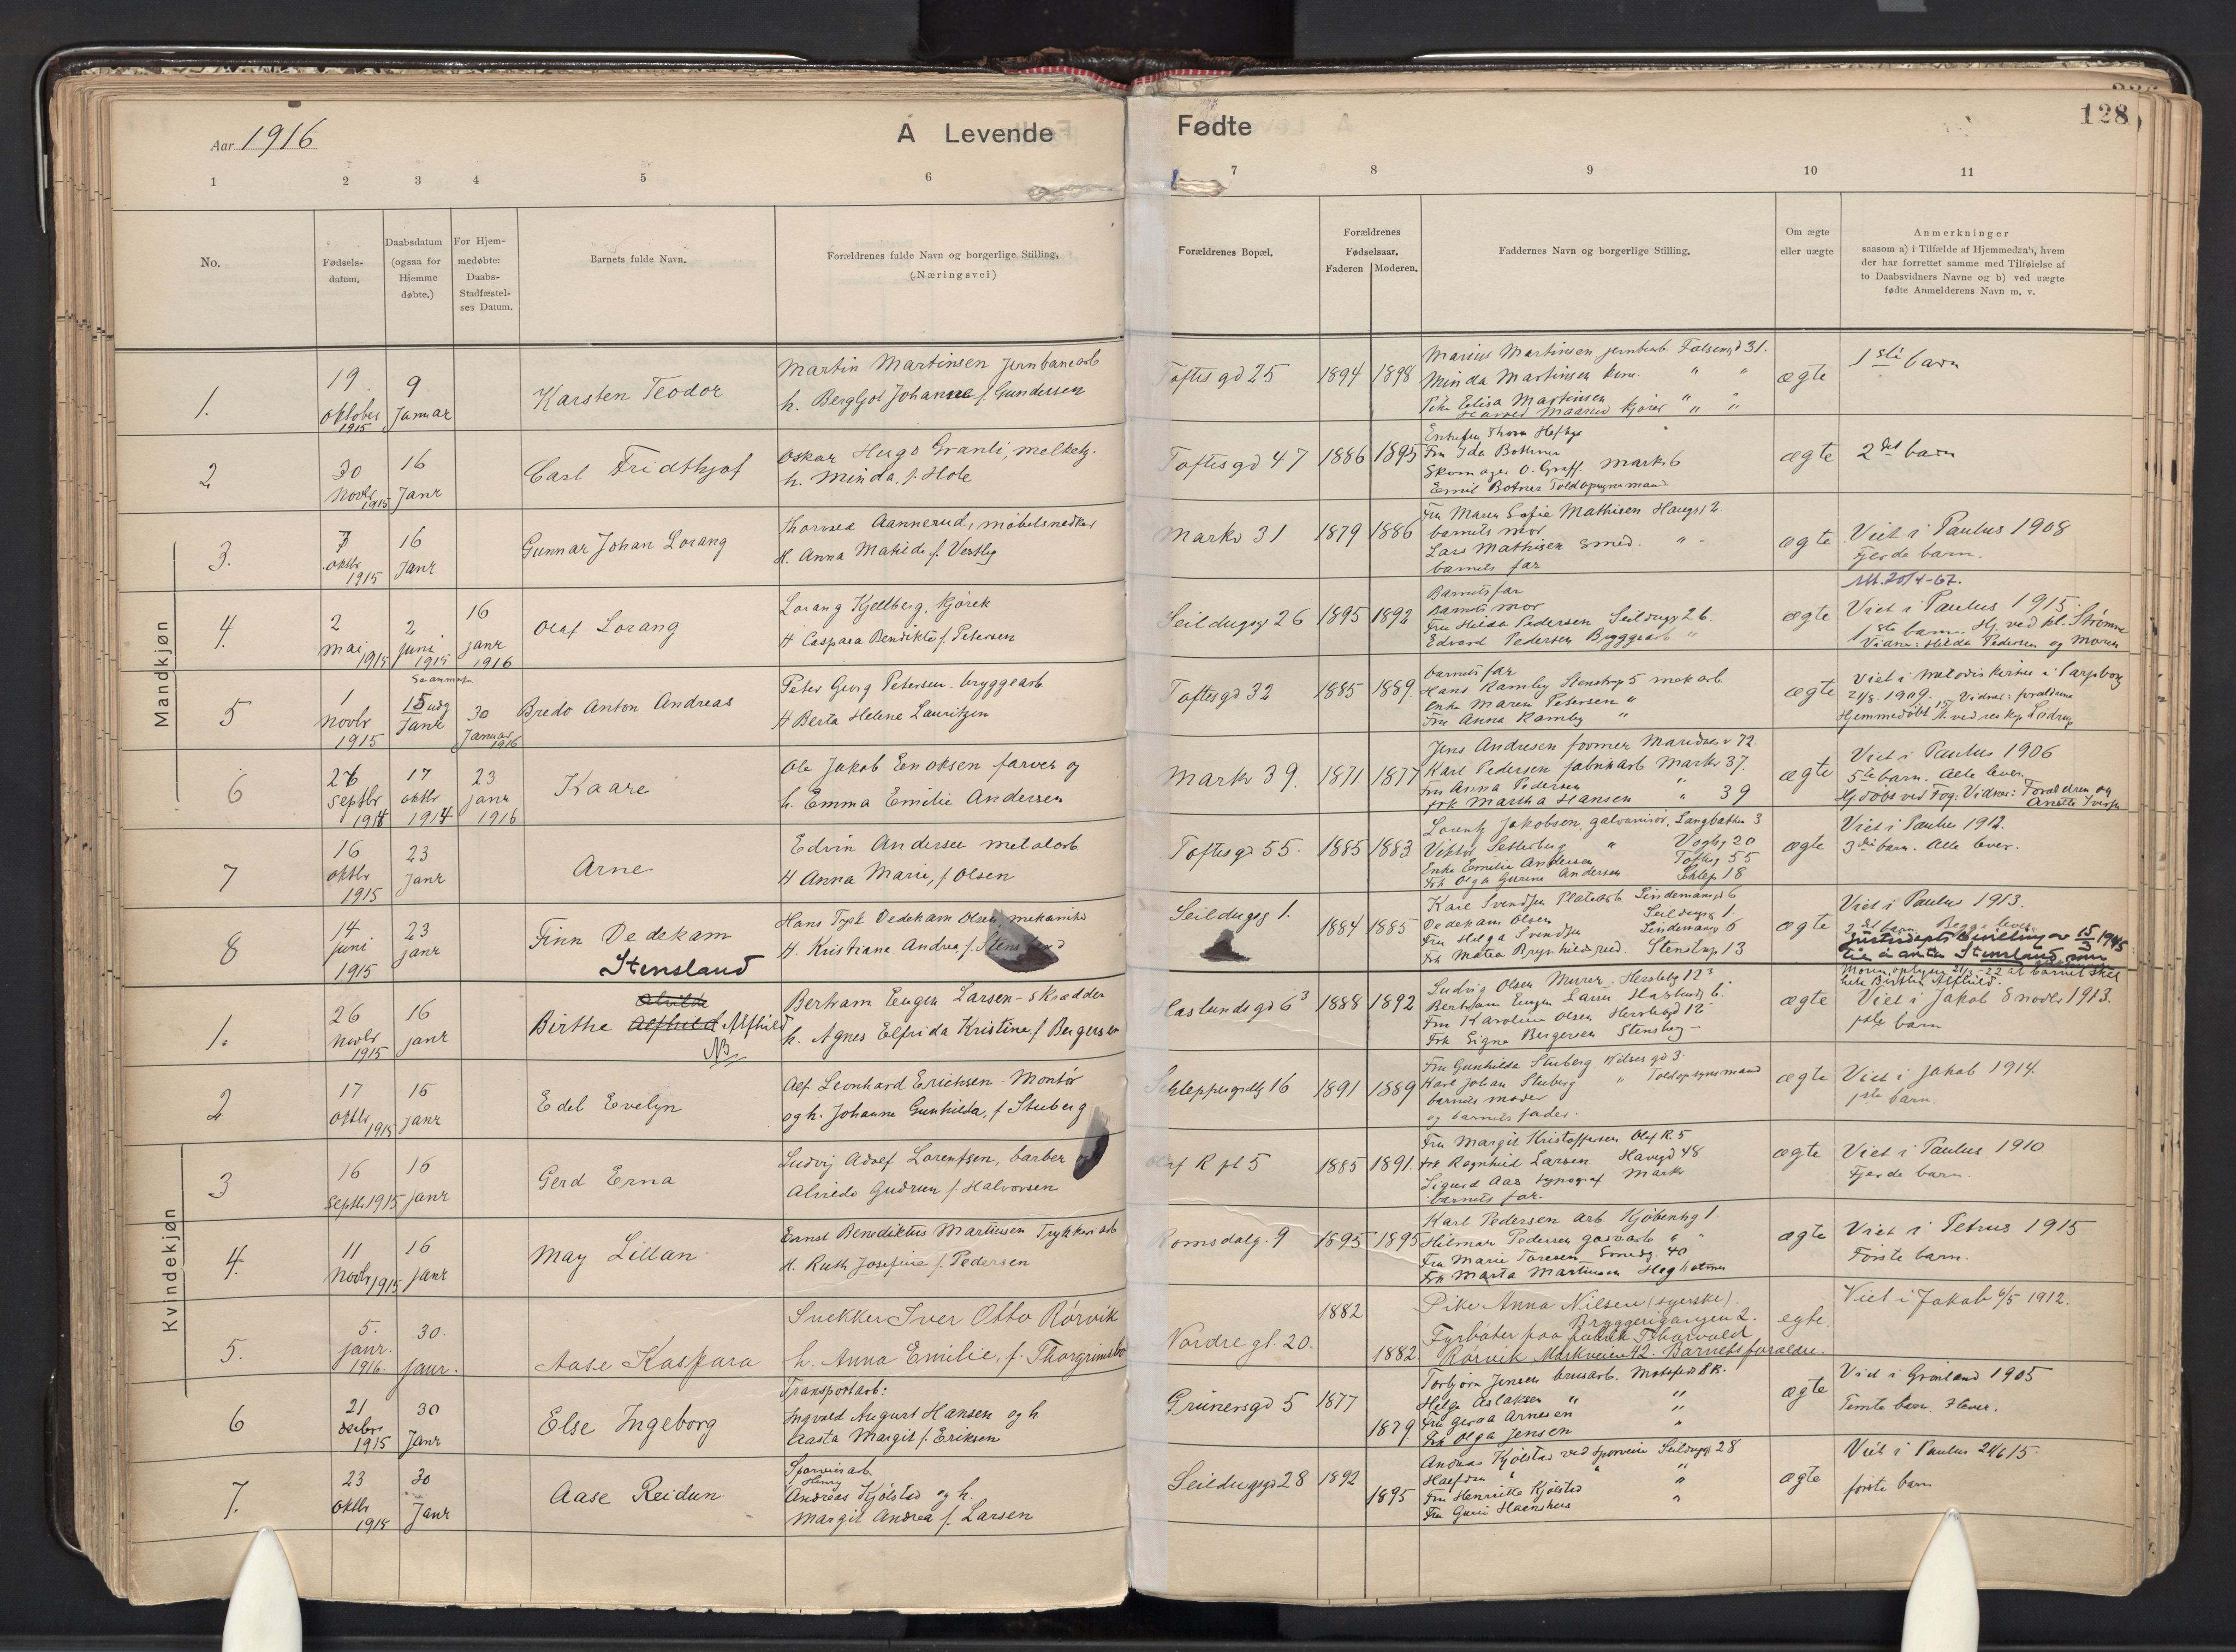 128
Aar 1916
A Levende Fødte
1 2 3 4 5 6 7 8 9 10 11
No.
Fødsels-
datum.
Daabsdatum
(ogsaa for
Hjemme
døbte.)
For Hjem-
medøbte:
Daabs-
Stadfæstel-
ses Datum.
Barnets fulde Navn.
Forældrenes fulde Navn og borgerlige Stilling.
(Næringsvei)
Forældrenes Bopæl.
Forældrenes
Fødselsaar.
Faderen Moderen.
Faddernes Navn og borgerlige Stilling.
Om ægte
eller uægte
Anmerkninger
saasom a) i Tilfælde af Hjemmedaab, hvem
der har forrettet samme med Tilføielse af
to Daabsvidners Navne og b) ved uægte
fødte Anmelderens Navn m. v.
Mandkjøn
1.
19
oktober
1915
9
Januar
Karsten Teodor
Martin Martinsen Jernbanearb
h. Bergljot Johanne f. Gundersen
Toftes gd 25
1894 1898
Marius Martinsen jernbarb. 31.
Minda Martinsen kone " "
Pike Elisa Martinsen " "
Maarud kjører " "
ægte
1ste barn
2
30
Novbr
1915
16
Janr
Carl Fridthjof
Oskar Hugo Granli, melkehj.
h. Minda, f. Hole
Toftes gd 47
1886 1895
Enkefru Thora
Fru Ida Bothner
Skomager O. Graff. Markv 6
Emil Botner Toldopsynsmand
ægte
2det barn
3.
7
oktbr
1915
16
Janr
Gunnar Johan Lorang
Thorvald Aannerud, møbelsnedker
H. Anna Matilde f. Vestby
Markv 31
1879 1886
Fru Maren Sofie Mathisen Haugsg 2.
barnets mor
Lars Mathisen Smed. " -
barnets far
ægte
Viet i Paulus 1908
Fjerde barn.
4.
2
mai
1915
2
juni
1915
16
janr
1916
Olaf Lorang
Lorang Kjellberg, kjørek
H Caspara Bendikte f. Petersen
Seildugsg 26
1895 1892
Barnets far
Barnets mor
Fru Hilda Pedersen Seildugsg 26.
Edvard Pedersen Bryggearb "
ægte
Att. 20/4-67.
Viet i Paulus 1915.
1ste barn. Hj. ved kl. Strømme
Vidner: Hilda Pedersen og Moren
5
1
Novbr
1915
15
Janr
30
Januar
1916
Bredo Anton Andreas
Peter Georg Petersen. bryggearb
H Berta Helene Lauritzen
Toftesgd 32
1885 1889.
barnets far
Hans Ramby Stenstrup 5 mek arb.
Enke Maren Petersen "
Fru Anna Ramby "
ægte
Viet i metodistkirke i Sarpsborg
21/8. 1909. Vidner: forældrene
Hjemmedøbt
6
26
Septbr
1914
17
oktbr
1914
23
janr
1916
Kaare
Ole Jakob Enoksen farver og
h. Emma Emilie Andersen
Markv 39.
1871 1877
Jens Andresen former Maridalsv 72.
Karl Pedersen fabrikarb Markv 37.
Fru Anna Pedersen "
Frk Martha Hansen " 39
ægte
Viet i Paulus 1906
5te barn. Alle lever.
Hjdøbt ved Fog: Vidner: Forældren og
Anette Iversen
7
16
oktbr
1915
23
Janr
Arne
Edvin Andersen metalarb
H Anna Marie, f. Olsen
Toftesgd 55.
1885 1883
Lorentz Jakobsen, galvanisør. Langbakken 3
Viktor Setterberg " Vogtsg 20
Enke Emilie Andersen Toftesg 55
Frk Olga Gurine Andersen Schlep 18
ægte
Viet i Paulus 1912.
3die barn. Alle lever.
8
14
juni
1915
23
janr
Finn Dedekam
Stensland
Hans Tysk Dedekam Olsen mekaniker
H. Kristiane Andrea f. Stensland
Seildugsg 1.
1884 1885
Karl Svendsen Platearb. Lindemansgd 6
Dedekam Olsen Seildugsg 1.
Fru Helga Svendsen Lindemansg 6
Frk Matea Brynhildsrud. Stenstrup 13
ægte
Viet i Paulus 1913.
2det barn. Begge lever
Justisdepts bevilling av 15/3 1945
til å anta Stensland som
Kvindekjøn
1.
26
Novbr
1915
16
janr
Birthe Alfhild Alfhild
NB
Bertram Eugen Larsen - Skrædder
h. Agnes Elfrida Kristine, f Bergersen
Haslunds gd 6³
1888 1892
Ludvig Olsen Murer Herslebg 12³
Bertram Eugen Larsen Haslundsg 6³
Fru Karoline Olsen Herslebgd 12
Frk Signe Bergersen Stensberg -
ægte
Moren oplyser 21/3-22 at barnet skal
hete Birthe Alfhild.
Viet i Jakob 8 novbr 1913.
1ste barn
2
17
oktbr
1915
16
janr
Edel Evelyn
Alf Leonhard Erichsen - Montør
og h. Johanne Gunhilda, f Stuberg
Schleppegrellsg 16
1891 1889
Fru Gunhilda Stuberg Nilses gd 3.
Karl Johan Stuberg " Toldopsynsmand
barnets moder
og barnets fader.
ægte
Viet i Jakob 1914.
1ste barn.
3
16
Septbr 1915
16
janr
Gerd Erna
Ludvig Adolf Lorentsen, barber
Alvilde Gudrun f. Halvorsen
Olaf R pl 5
1885 1891.
Fru Margit Kristoffersen Olaf R. 5
Frk Ragnhild Larsen Havegd 48
Sigurd Aas typograf Markv
barnets far.
ægte
Viet i Paulus 1910
Fjerde barn.
4.
11
Novbr 1915
16
janr
May Lillan
Ernst Benediktus Martinsen Trykkeriarb
H. Ruth Josefine f. Pedersen
Romsdalg. 9
1895 1895
Karl Pedersen arb. Kjøbenhg 1.
Hilmar Pedersen gasvarb " "
Fru Marie Toresen Smedg. 40
Frk Marta Martinsen Hegholmen
ægte
Viet i Petrus 1915
Første barn.
5.
5.
janr.
1916.
30.
Janr.
Aase Kaspara
Snekker Iver Otto Rørvik
h. Anna Emilie, f. Thorgrimsbo
Nordre gt. 20.
1882
1882.
Pike Anna Nilsen (syerske).
Bryggerigangen 2.
Fyrbøter paa fabrik Tharvald
Rørvik Markveien 42. Barnets forældre.
egte.
Viet i Jakob 6/5 1912.
6
21
decbr
1915
30
Janr
Else Ingeborg
Transportarb:
Ingvald August Hansen og h.
Aasta Margit f. Eriksen
Grünersgd 5
1877
1879.
Torbjørn Jensen brusarb.
Helge Aslaksen " "
Fru Gerda Arnesen "
Frk Olga Jensen
ægte
Viet i Grønland 1905
Femte barn. 3 lever.
7.
23
oktbr
1915
30
Janr
Aase Reidun
Sporveisarb
Henry
Andreas Kjølstad og h.
Margit Andrea f. Larsen
Seildugsgd 28
1892
1895
Andreas Kjølstad ved sporveien Seildugsg 28
Halfdan " " "
Fru Henriette Kjølstad "
Fru Guri Haenshus "
ægte
Viet i Paulus 24/6 15.
første barn